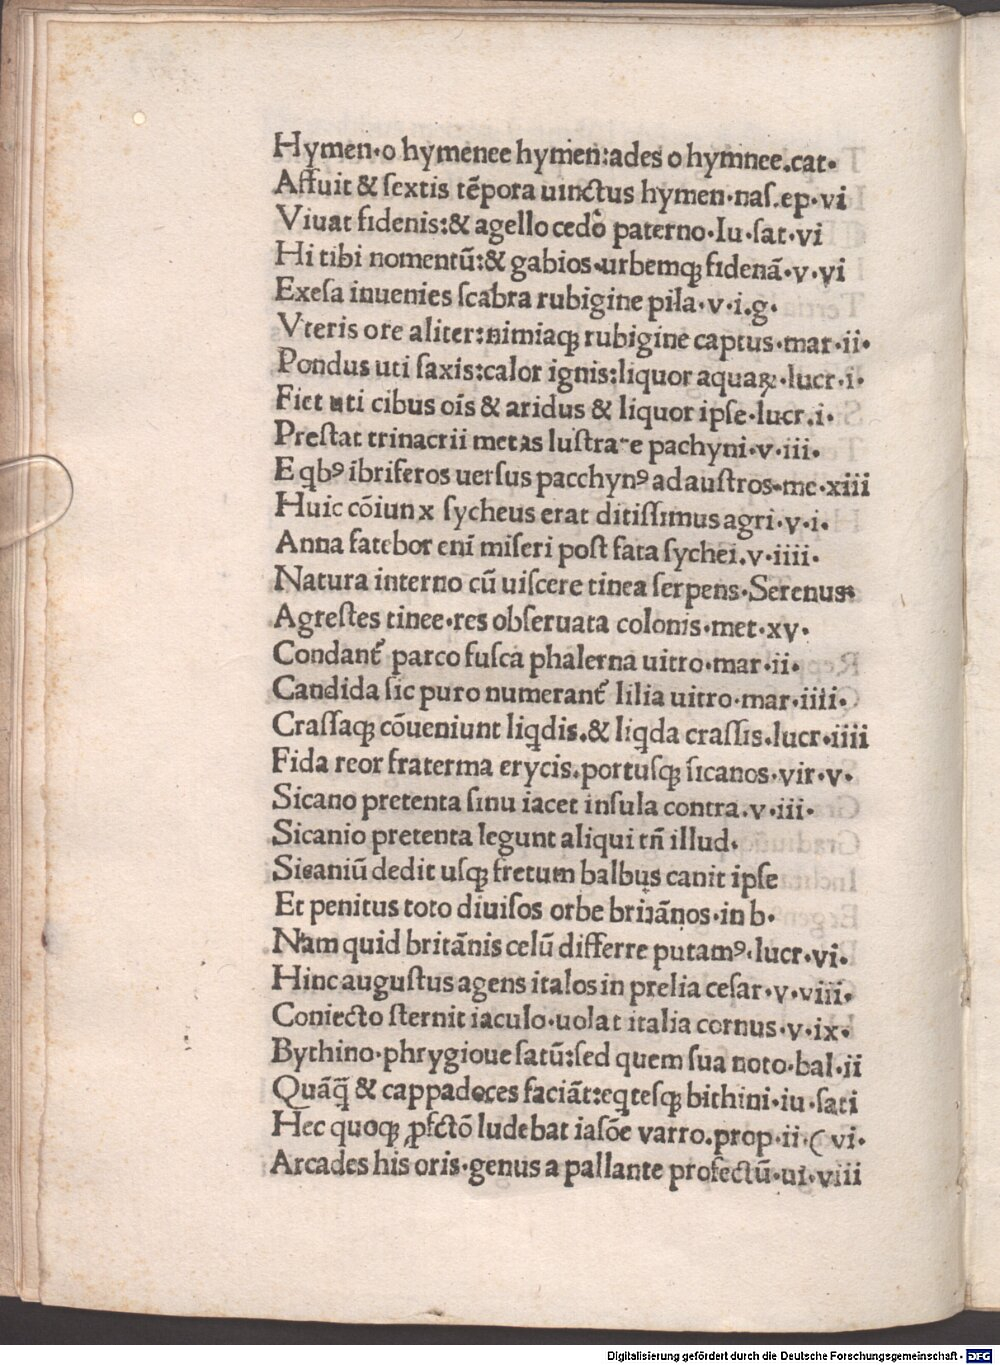 Hymen·o hymenee hymen:ades o hymnee.cat·
Affuit & sextis tēpora uinctus hymen·nas.ep·vi
Viuat fidenis:& agello cedo᷒ paterno·Iu·sat·vi
Hi tibi nomentū:& gabios·urbemqꝫ fidenā·v·vi
Exesa inuenies scabra rubigine pila·v·i.g·
Vteris ore aliter:nimiaqꝫ rubigine captus·mar·ii·
Pondus uti saxis:calor ignis:liquor aquaꝝ·lucr·i·
Fiet uti cibus oīs & aridus & liquor ipse·lucr.i·
Prestat trinacrii metas lustra-e pachyni·v·iii·
E qbꝰ ibriferos uersus pacchynꝰ ad austros·me·xiii
Huic cōiunx sycheus erat ditissimus agri·v·i·
Anna fatebor enī miseri post fata sychei.v·iiii·
Natura interno cū uiscere tinea serpens·Serenus
Agrestes tinee·res obseruata colonis·met·xv·
Condant᷑ parco fusca phalerna uitro·mar·ii·
Candida sic puro numerant᷑ lilia uitro·mar·iiii·
Crassaqꝫ cōueniunt liqdis.& liqda crassis.lucr·iiii
Fida reor fraterma erycis.portusqꝫ sicanos·vir·v·
Sicano pretenta sinu iacet insula contra.v·iii·
Sicanio pretenta legunt aliqui tn̄ illud·
Sicaniū dedit usqꝫ fretum balbus canit ipse
Et penitus toto diuisos orbe britānos·in b·
Nam quid britānis celū differre putamꝰ·lucr·vi·
Hinc augustus agens italos in prelia cesar·v·viii·
Coniecto sternit iaculo·uolat italia cornus·v·ix·
Bythino·phrygioue satū:sed quem sua noto·bal·ii
Quāq̄ & cappadoces faciāt:eqtesqꝫ bithini·iu·sati
Hec quoqꝫ ꝓfctō ludebat iasōe varro.prop·ii·( vi·
Arcades his oris·genus a pallante profectū·ui·viii
Digitalisierung gefördert durch die Deutsche Forschungsgemeinschaft - DFG